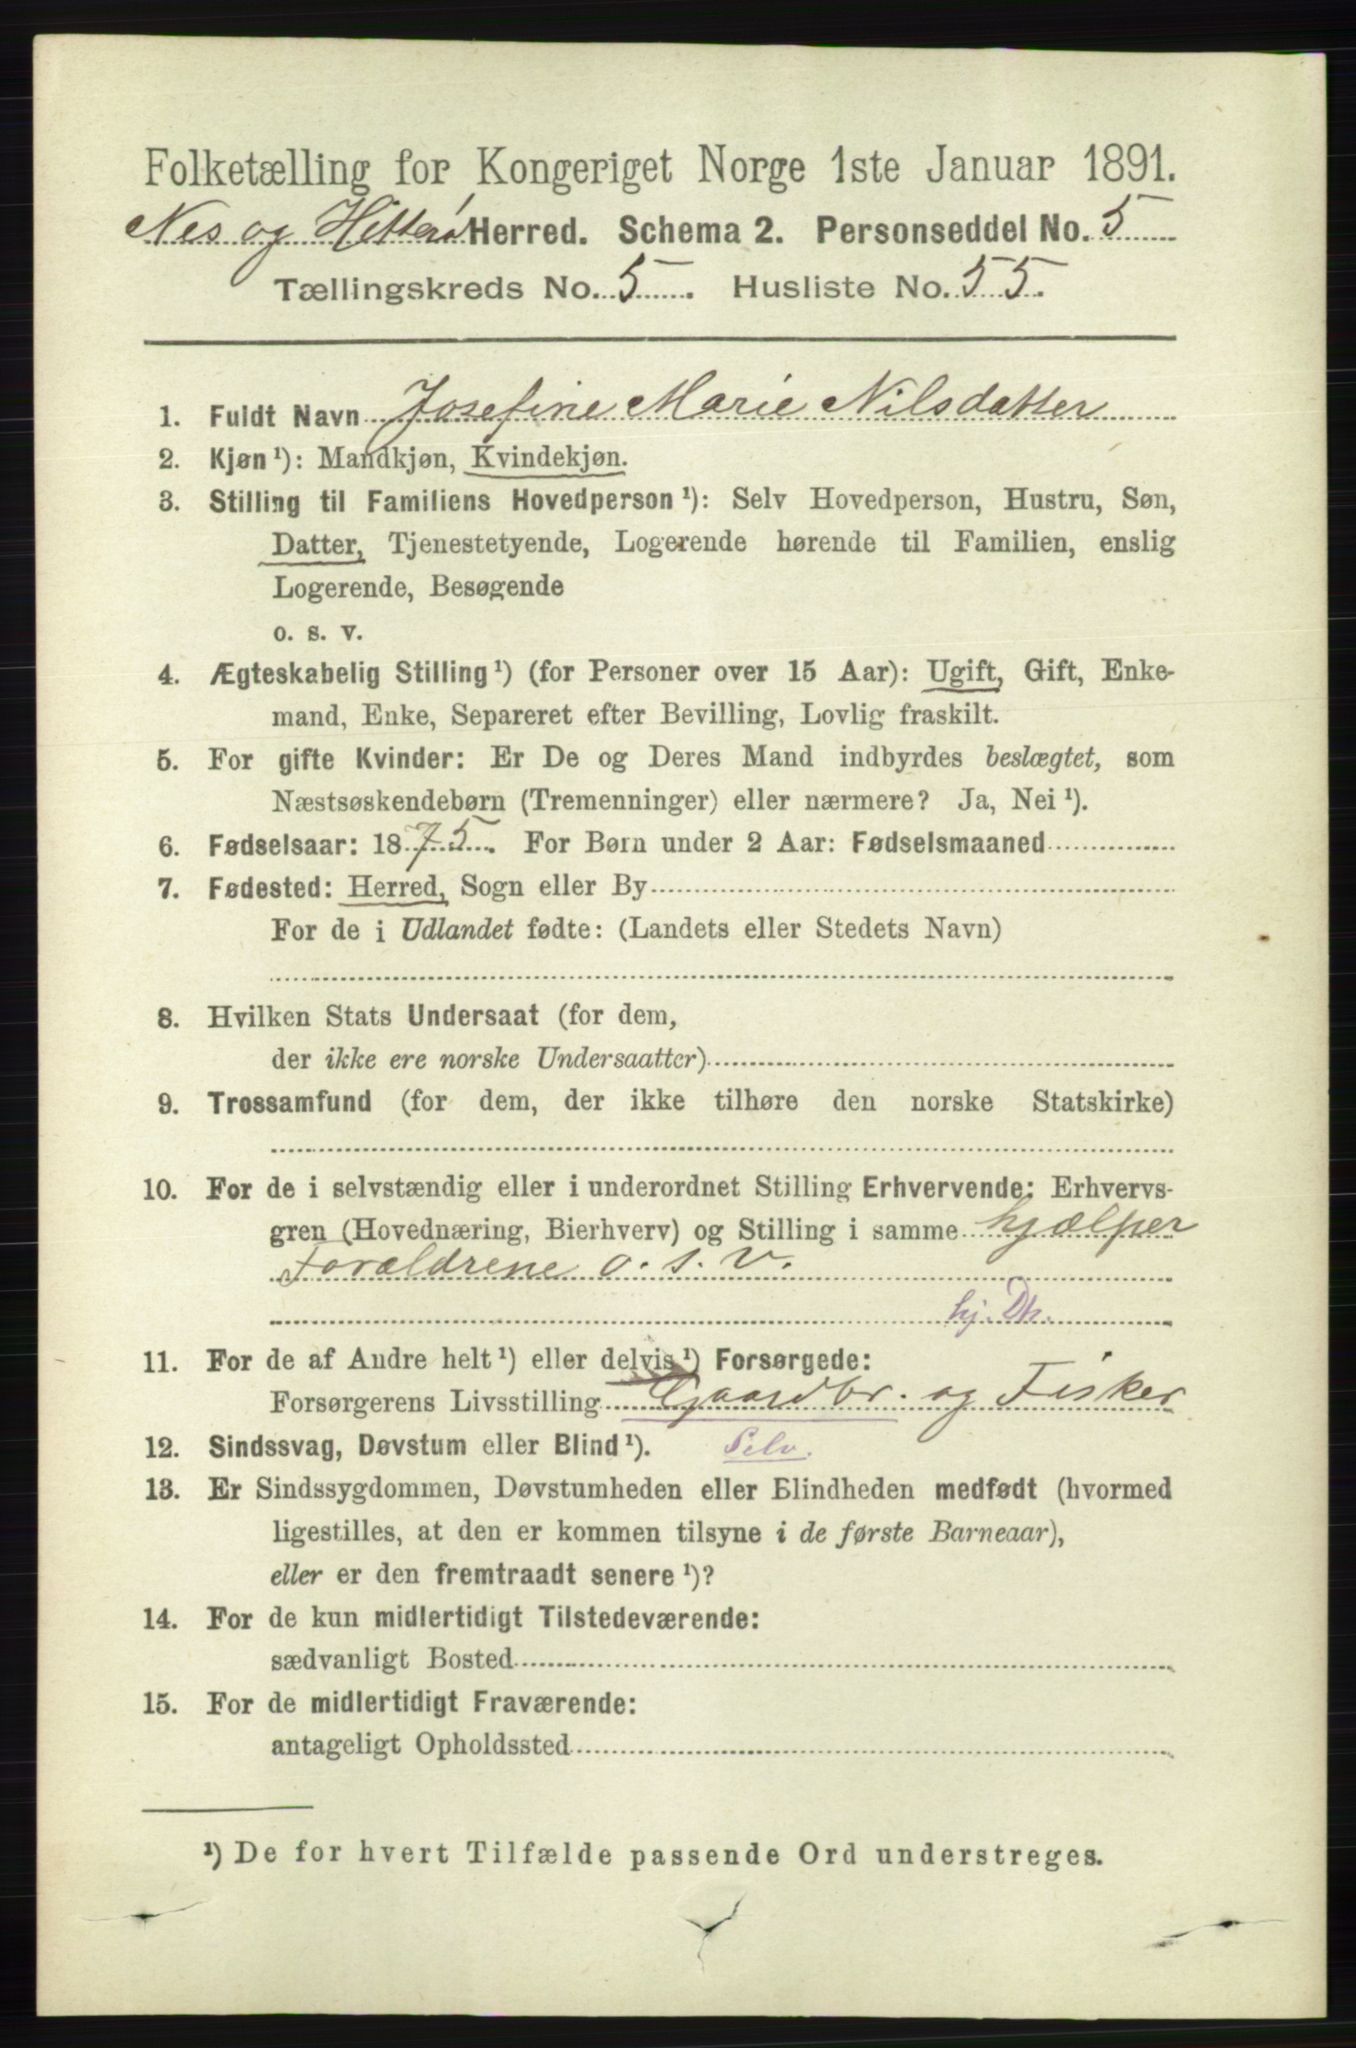 Folketælling for Kongeriget Norge 1ste Januar 1891.
Nes og Hitterø Herred. Schema 2. Personseddel No. 5
Tællingskreds No. 5. Husliste No. 55.
1. Fuldt Navn Josefine Marie Nilsdatter
2. Kjøn ¹): Mandkjøn, Kvindekjøn.
3. Stilling til Familiens Hovedperson ¹): Selv Hovedperson, Hustru, Søn,
Datter, Tjenestetyende, Logerende hørende til Familien, enslig
Logerende, Besøgende
o. s. v.
4. Ægteskabelig Stilling ¹) (for Personer over 15 Aar): Ugift, Gift, Enke-
mand, Enke, Separeret efter Bevilling, Lovlig fraskilt.
5. For gifte Kvinder: Er De og Deres Mand indbyrdes beslægtet, som
Næstsøskendebørn (Tremenninger) eller nærmere? Ja, Nei ¹).
6. Fødselsaar: 1875. For Børn under 2 Aar: Fødselsmaaned
7. Fødested: Herred, Sogn eller By
For de i Udlandet fødte: (Landets eller Stedets Navn)
8. Hvilken Stats Undersaat (for dem,
der ikke ere norske Undersaatter)
9. Trossamfund (for dem, der ikke tilhøre den norske Statskirke)
10. For de i selvstændig eller i underordnet Stilling Erhvervende: Erhvervs-
gren (Hovednæring, Bierhverv) og Stilling i samme hjælper
Forældrene o. s. v.
hj. Dtr.
11. For de af Andre helt ¹) eller delvis ¹) Forsørgede:
Forsørgerens Livsstilling Gaardbr. og Fisker
12. Sindssvag, Døvstum eller Blind ¹). Selv.
13. Er Sindssygdommen, Døvstumheden eller Blindheden medfødt (hvormed
ligestilles, at den er kommen tilsyne i de første Barneaar),
eller er den fremtraadt senere ¹)?
14. For de kun midlertidigt Tilstedeværende:
sædvanligt Bosted
15. For de midlertidigt Fraværende:
antageligt Opholdssted
¹) De for hvert Tilfælde passende Ord understreges.